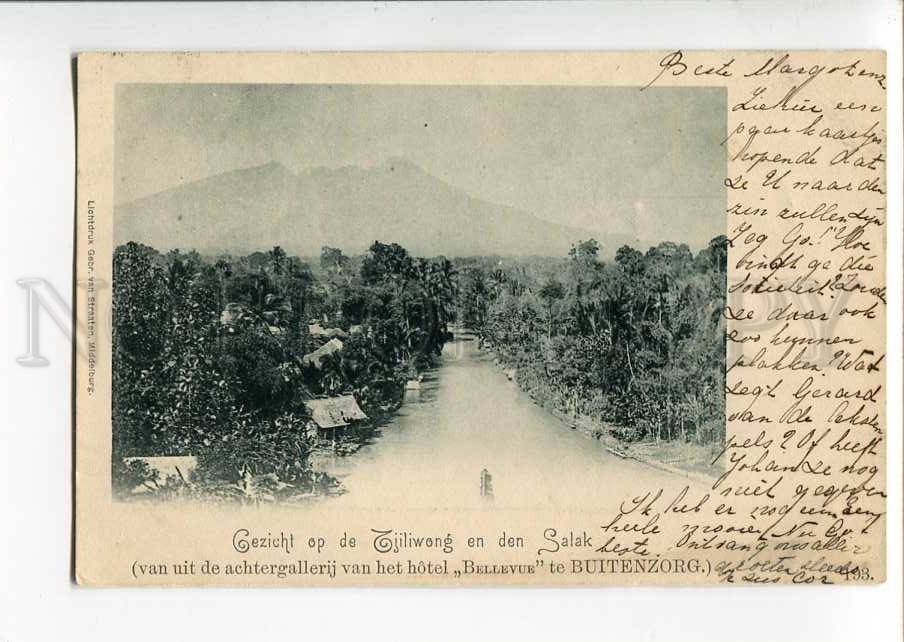 Beste Margo
Ziehier een
paar kaartjes
hopende dat
ze U naar den
zin zullen zijn
Zeg Go!! Hoe
vindt ge die
sociëteit? Zouden
ze daar ook
zoo kunnen
plakken? Wat
zegt Gerard
van de
pels? Of heeft
Johan ze nog
niet gegeven
Ik heb er nog een
heele mooie. Nu Go
beste. Ontvang aller
groeten steeds
je zus Cor
Lichtdruk Gebr. van Straaten, Middelburg.
Gezicht op de Tjiliwong en den Salak
(van uit de achtergallerij van het hôtel „Bellevue” te BUITENZORG.)
193.